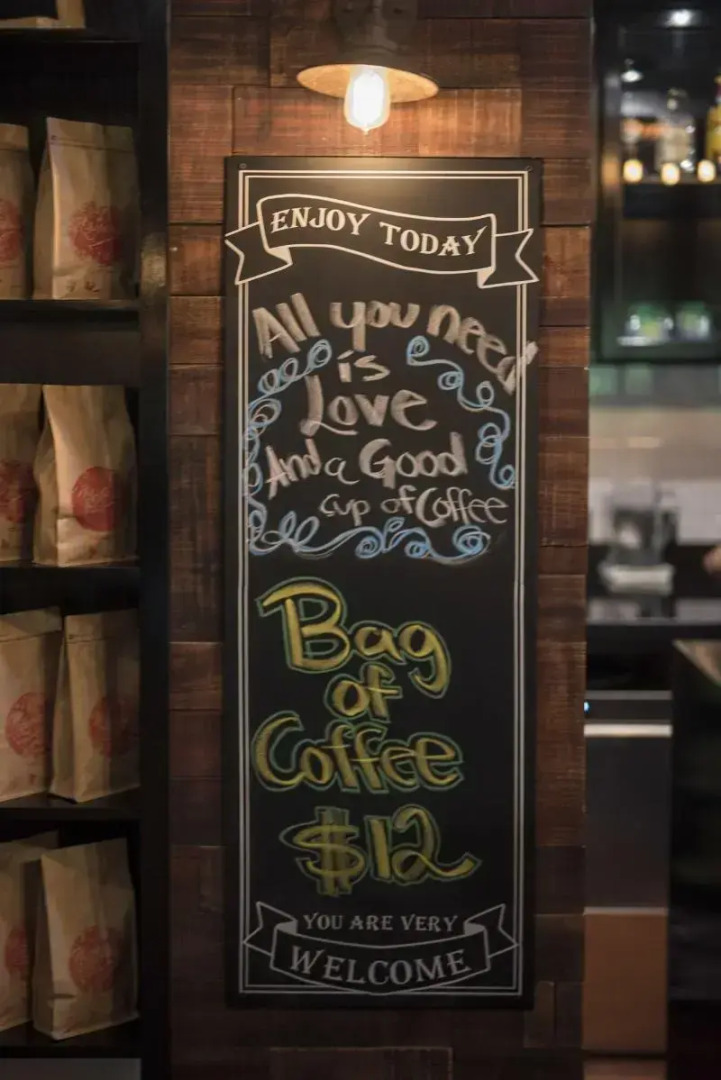 ENJOY TODAY
All you need
is
Love
And a Good
cup of Coffee
Bag
of
Coffee
$12
YOU ARE VERY
WELCOME